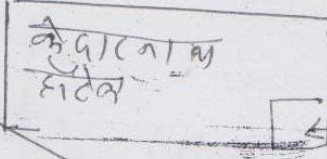 केदारनाथ
हॉटेल